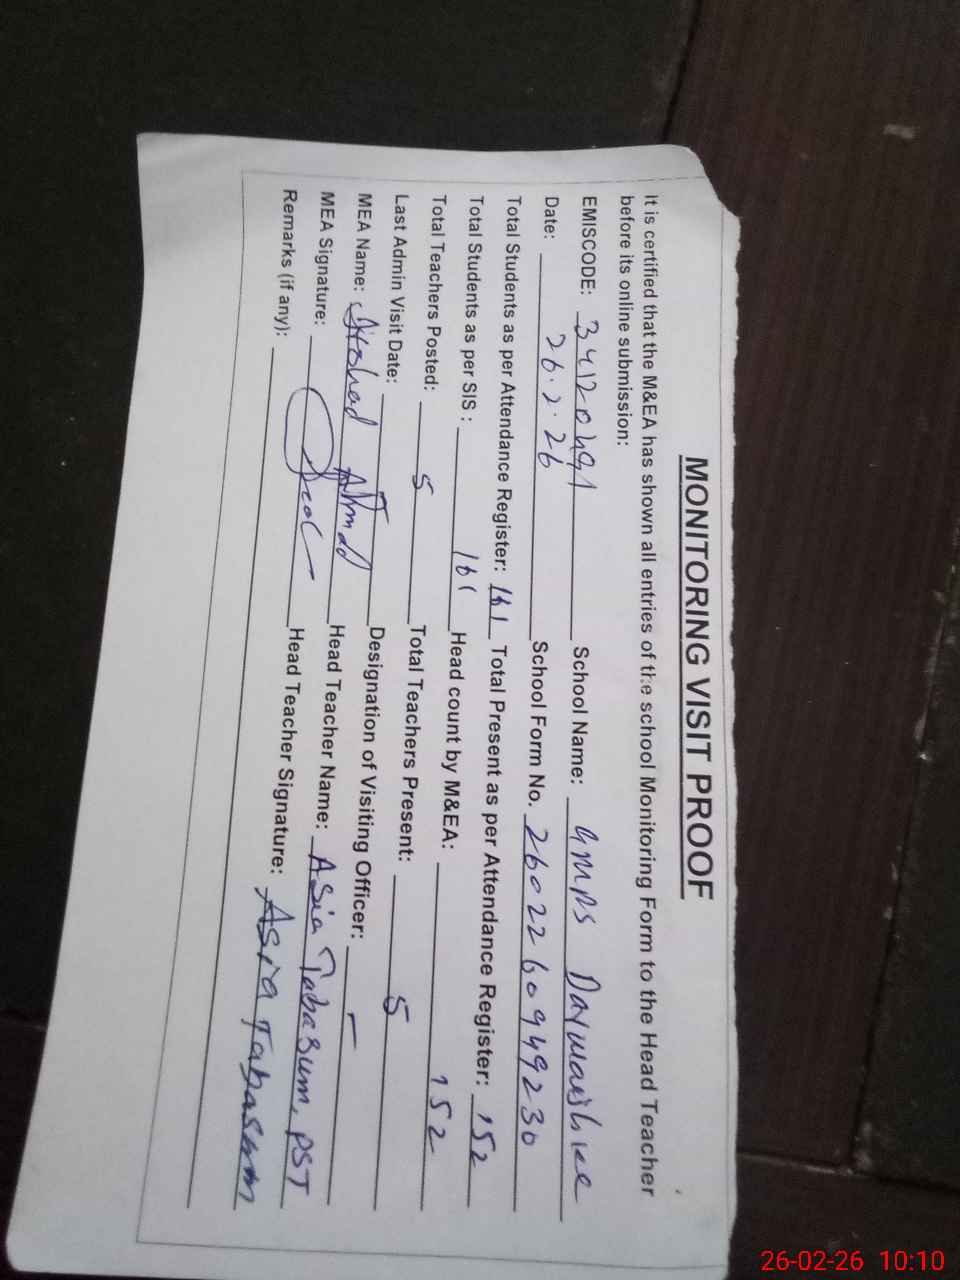 MONITORING VISIT PROOF
It is certified that the M&EA has shown all entries of the school Monitoring Form to the Head Teacher
before its online submission:
EMISCODE: 34120491 School Name: GMPS
Date: 26.2.26 School Form No. 2602260949230
Total Students as per Attendance Register: 161 Total Present as per Attendance Register: 152
Total Students as per SIS : 161 Head count by M&EA: 152
Total Teachers Posted: 5 Total Teachers Present: 5
Last Admin Visit Date: — Designation of Visiting Officer: —
MEA Name: Arshad Ahmad Head Teacher Name: Asia Tabasum, PST
MEA Signature: Head Teacher Signature: Asia Tabasum
Remarks (if any):
26-02-26 10:10